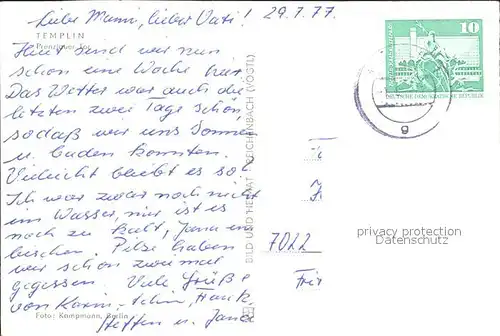 Liebe Mami, lieber Vati! 29.7.77.
TEMPLIN
Prenzlauer Tor
Heut sind wir nun
schon eine Woche hier.
Das Wetter war auch die
letzten zwei Tage schön,
sodaß wir uns Sonnen
u. baden konnten.
Vielleicht bleibt es so!
Ich war zwar noch nicht
im Wasser, mir ist es
noch zu kalt, Jana ein
bischen. Pilze haben
wir schon zweimal
gegessen. Viele Grüße
von Karin, Frank,
Steffen u. Jana
Foto: Kampmann, Berlin
BILD UND HEIMAT REICHENBACH (VOGTL)
10
DEUTSCHE DEMOKRATISCHE REPUBLIK
g
7022
privacy protection
Datenschutz